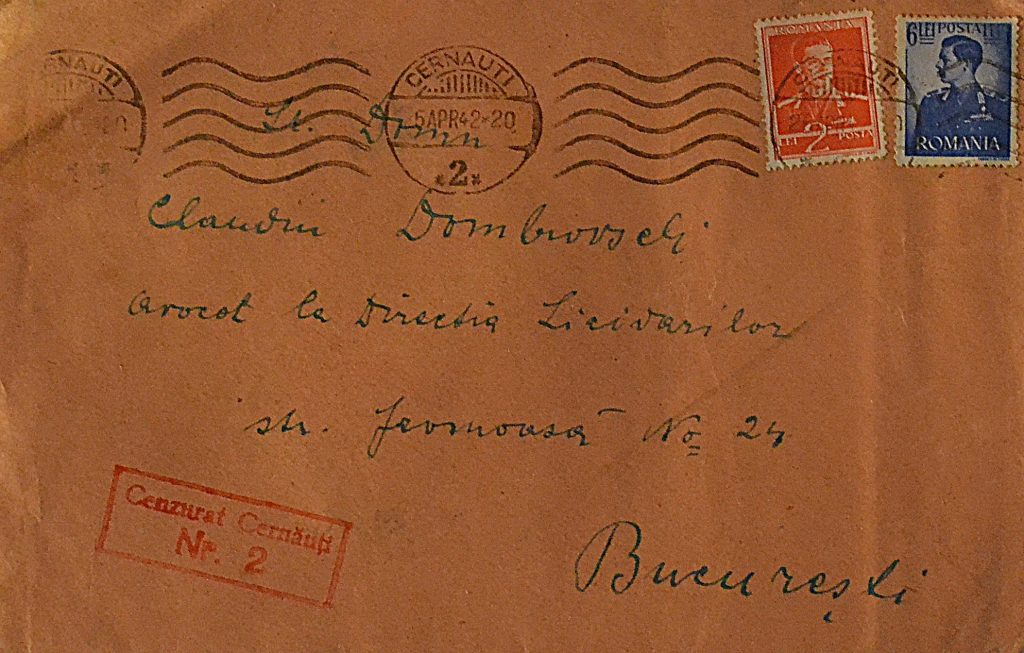 CERNAUTI
5 APR 42-20
*2*
ROMANIA
2
LEI POSTA
6 LEI POSTA
ROMANIA
Domn
Claudiu Dombrovschi
avocat la Directia
str. No 24
Cenzurat Cernăuți
Nr. 2
București